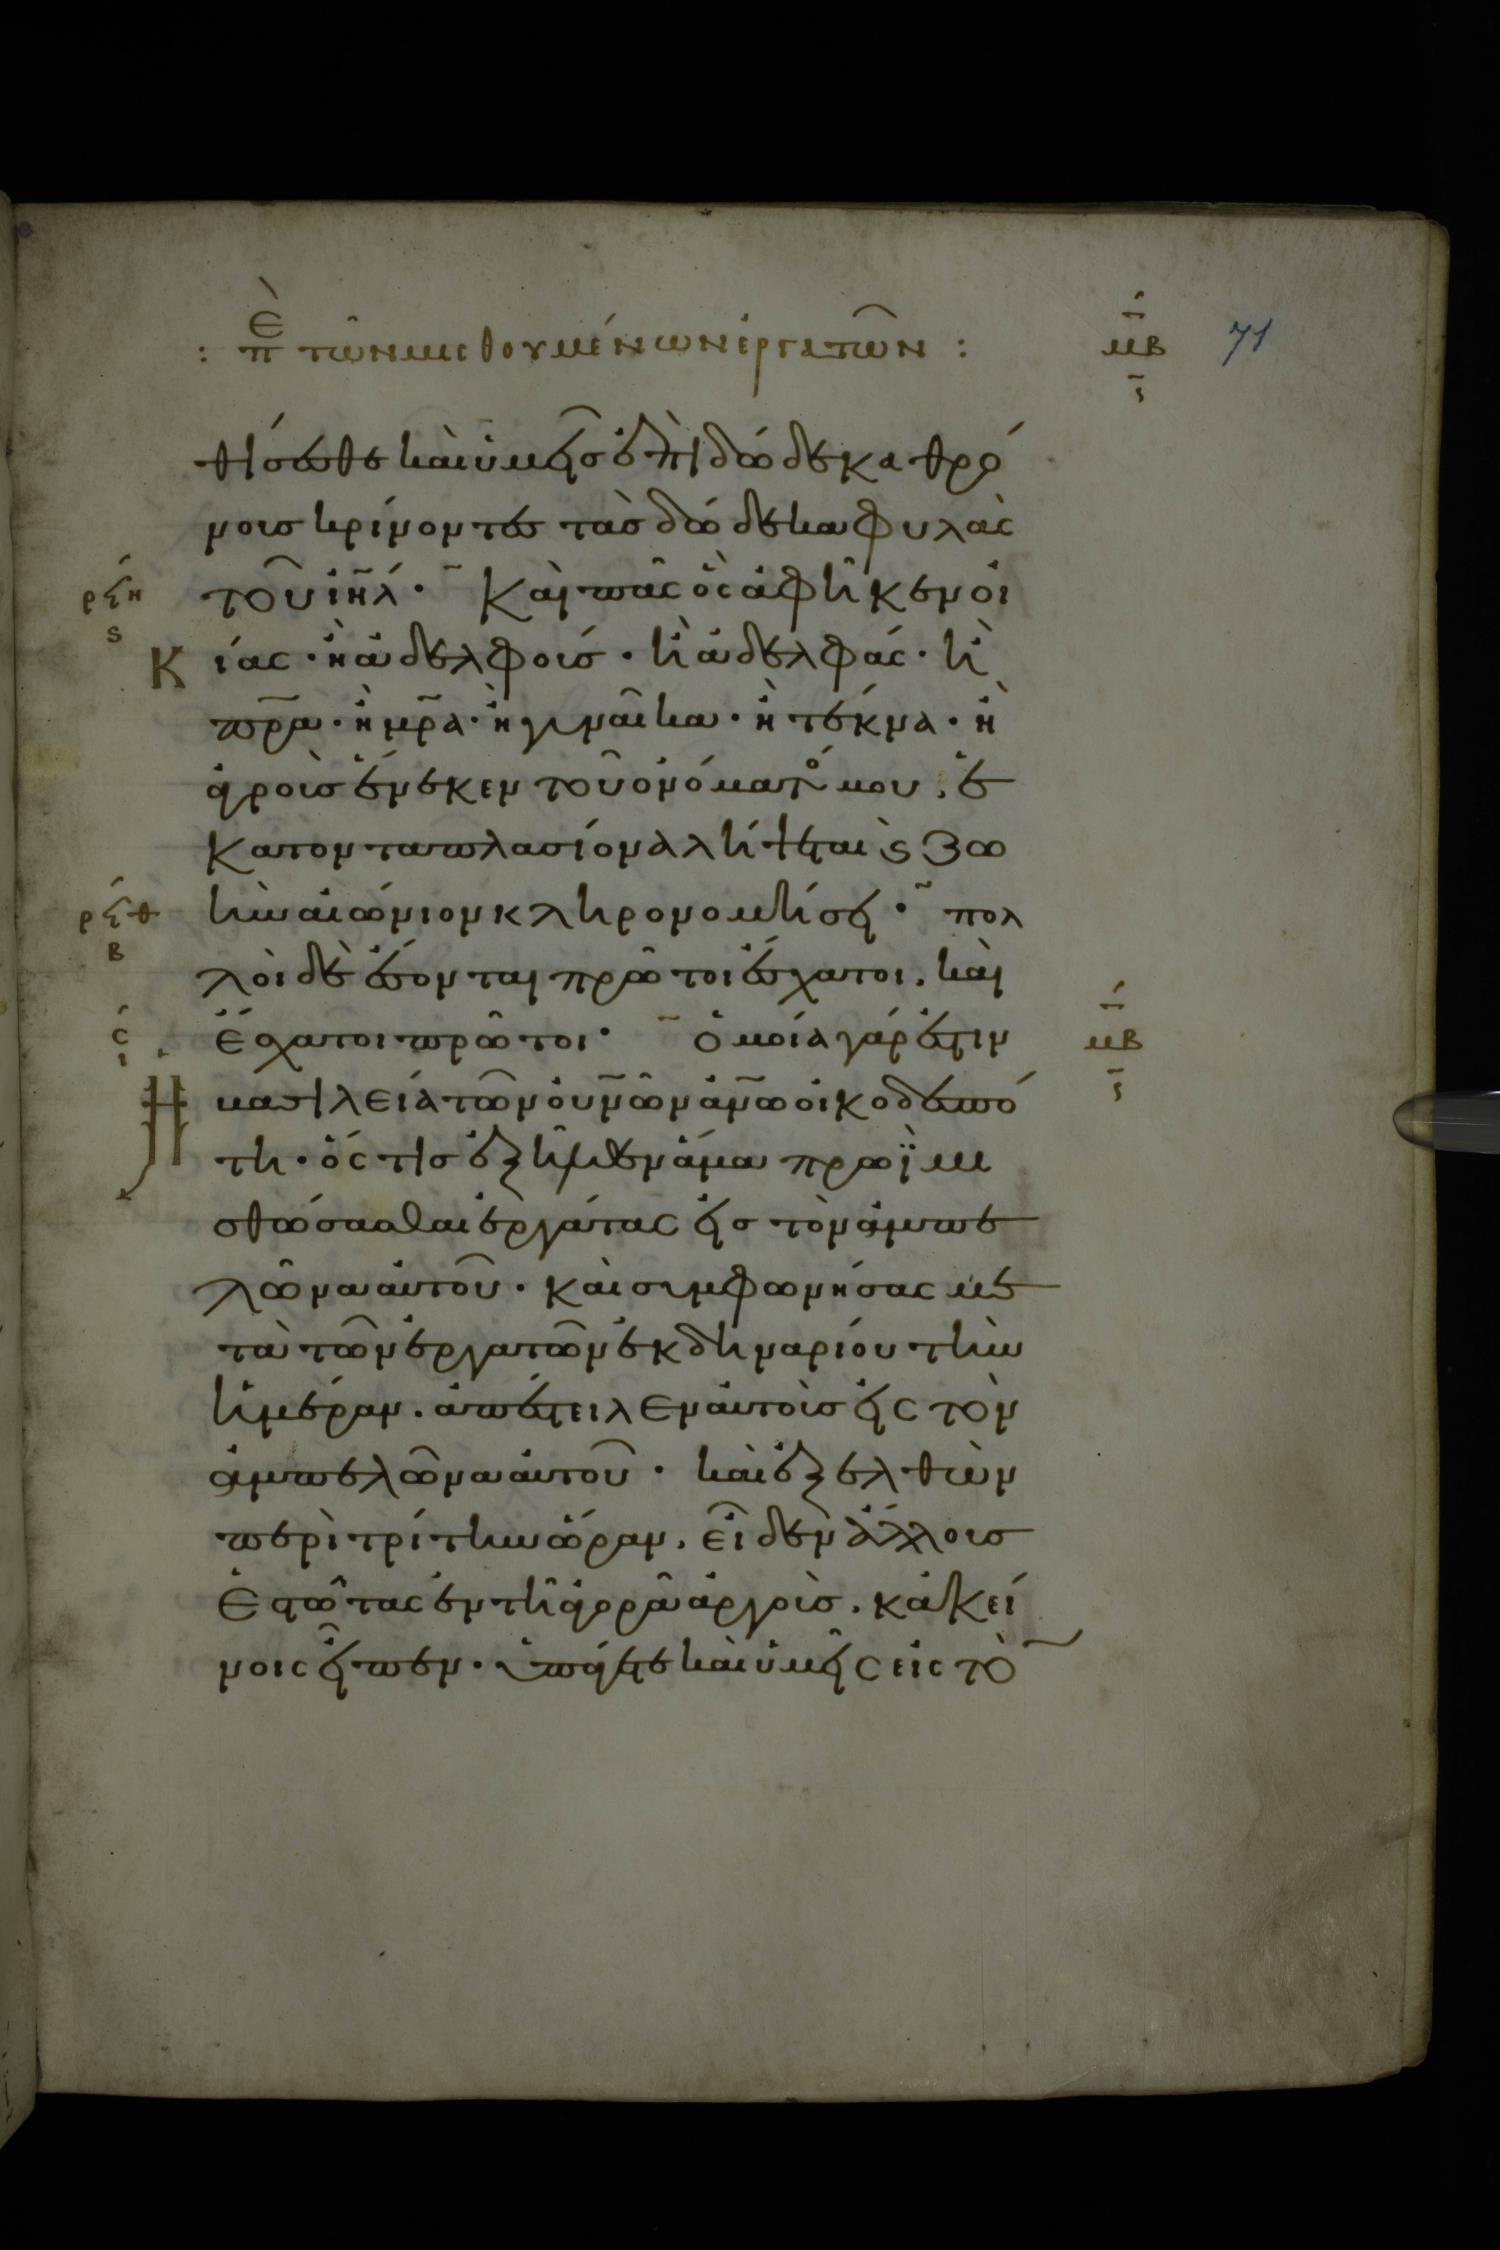 : πε τῶν μισθουμένων ἐργατῶν : μβ 71
θήσεσθε καὶ ὑμεῖς ἐπὶ δώδεκα θρό
νοις κρίνοντες τὰς δώδεκα φυλὰς
ρϟη τοῦ ιηλ· Καὶ πᾶς ὃς ἀφῆκεν οἰ
ϛ
κίας · ἢ ἀδελφοὺς · ἢ ἀδελφάς · ἢ
πρα · ἢ μρα · ἢ γυναῖκα · ἢ τέκνα · ἢ
ἀγροὺς ἕνεκεν τοῦ ὀνόματός μου, ἑ
κατονταπλασίονα λήψεται ϛ ζω
ρϟθ ὴν αἰώνιον κληρονομήσει · πολ
β
λοὶ δὲ ἔσονται πρῶτοι ἔσχατοι, καὶ
ς ἔσχατοι πρῶτοι · ὁμοία γάρ ἐστιν μβ
ι
ἡ βασιλεία τῶν οὐνῶν ἀνῶ οἰκοδεσπό
τη · ὅς τις ἐξῆλθεν ἅμα πρωῒ μι
σθώσασθαι ἐργάτας εἰς τὸν ἀμπε
λῶνα αὐτοῦ · καὶ συμφωνήσας με
τὰ τῶν ἐργατῶν ἐκ δηναρίου τὴν
ἡμέραν · ἀπέστειλεν αὐτοὺς εἰς τὸν
ἀμπελῶνα αὐτοῦ · καὶ ἐξελθὼν
περὶ τρίτην ὥραν, εἶδεν ἄλλους
ἑστῶτας ἐν τῇ ἀγορᾷ ἀργοὺς, κἀκεί
νοις εἶπεν · ὑπάγετε καὶ ὑμεῖς εἰς τὸ